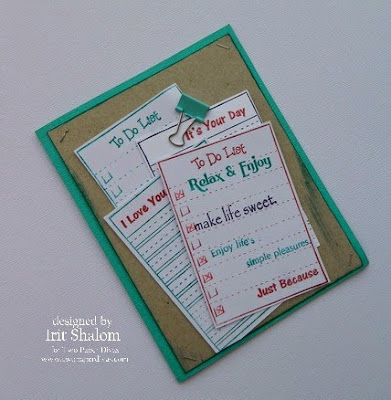 To Do List
It's Your Day
I Love You
To Do List
Relax & Enjoy
make life sweet.
Enjoy life's
simple pleasures.
Just Because
designed by
Irit Shalom
for Two Paper Divas